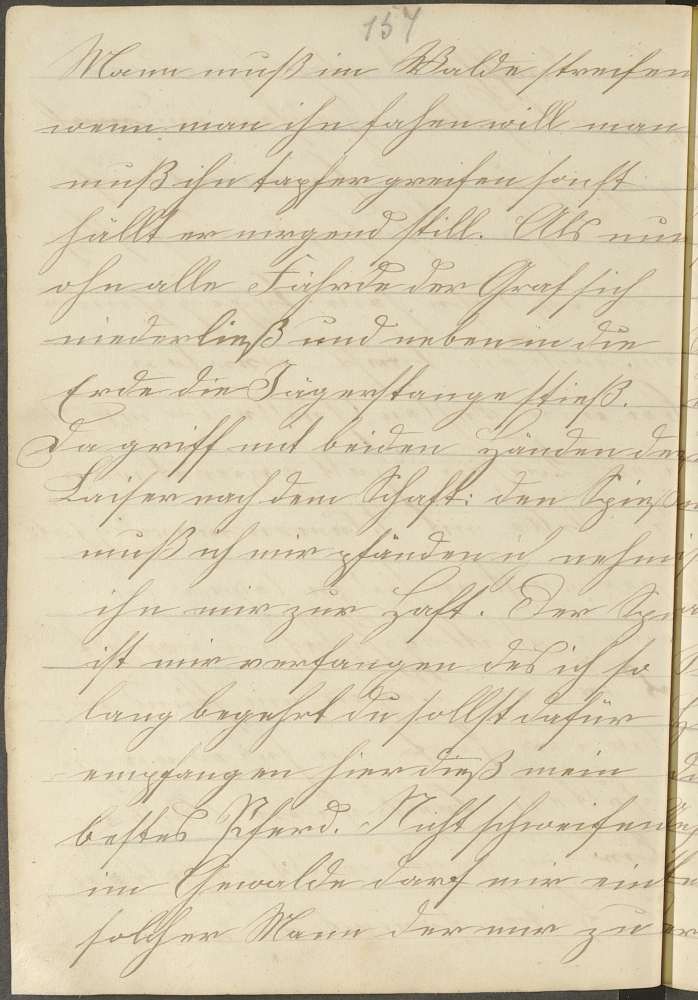 157
Mann muß im Walde streifen
wenn man ihn fahen will man
muß ihn tapfer greifen sonst
hällt er nirgend still. Als nun
ohn alle Fährde der Graf sich
niederließ und neben in die
Erde die Jägerstange stieß.
Da griff mit beiden Händen der
Kaiser nach dem Schaft: den Spieß
muß ich mir pfänden ich nehm
ihn mir zur Haft. Der Spieß
ist mir verfangen des ich so
lang begehrt du sollst dafür
empfangen hier dieß mein
bestes Pferd. Nicht schweifen
im Gewalde darf mir ein
solcher Mann der mir zu